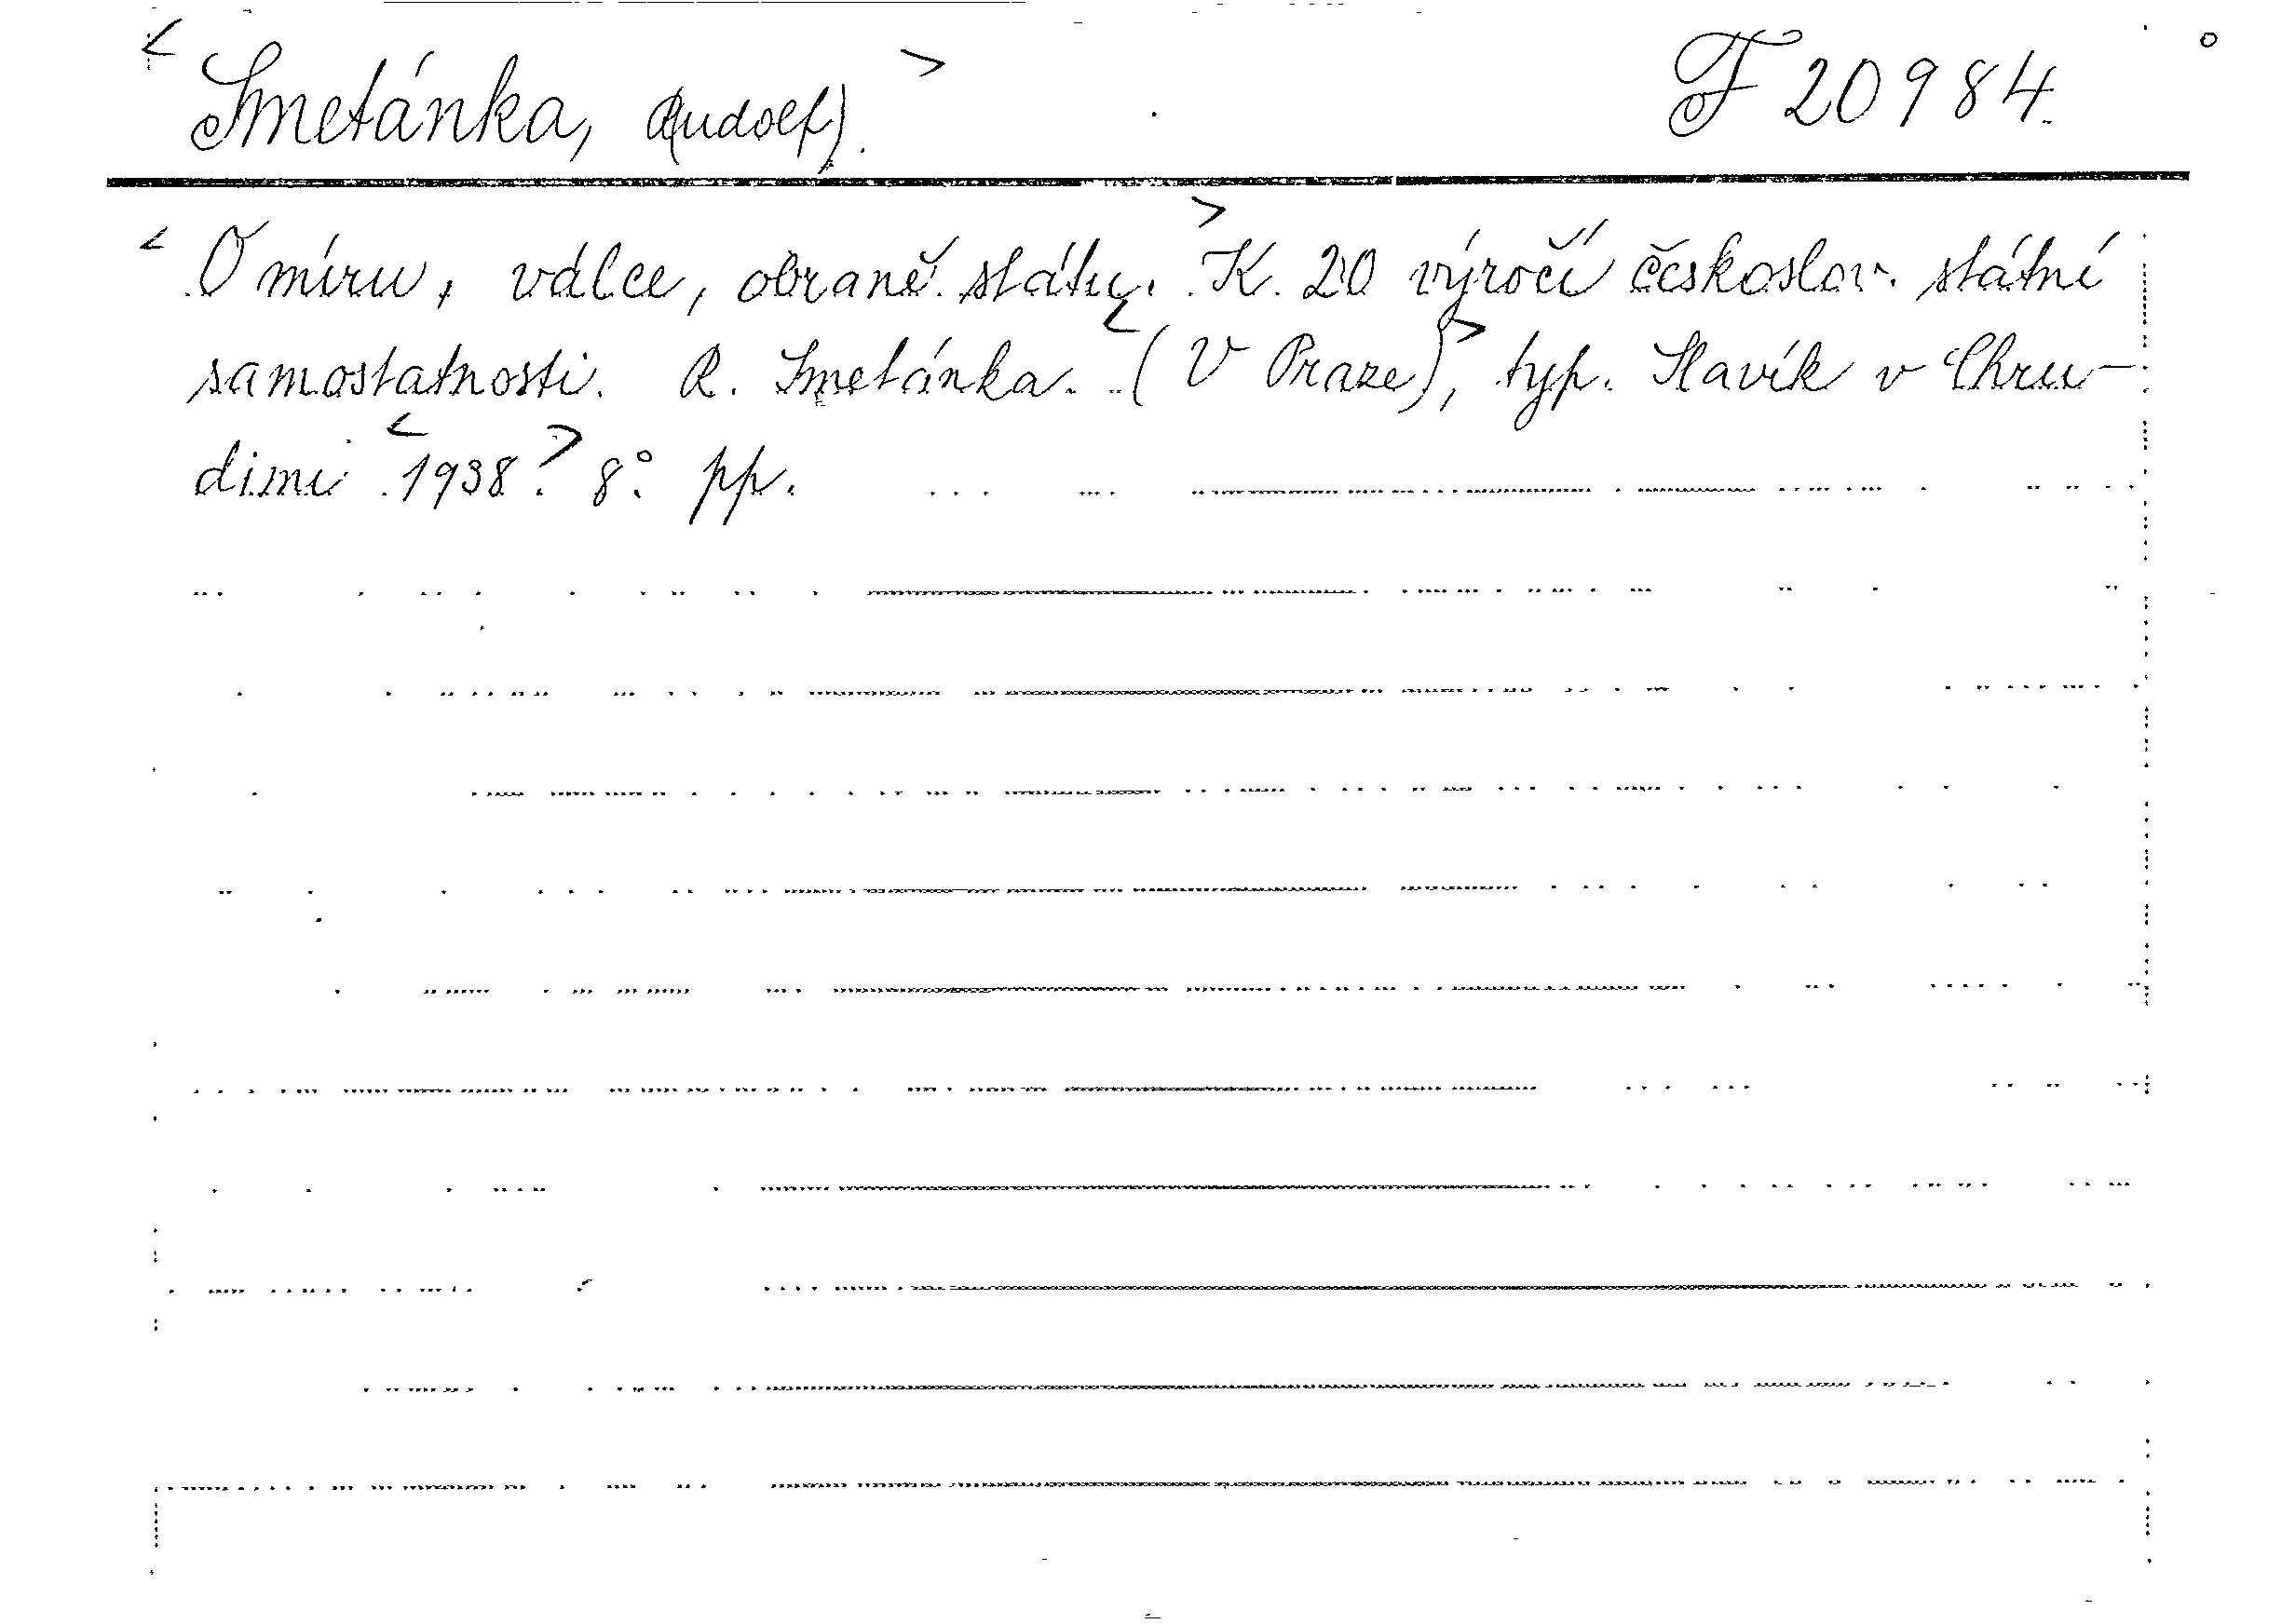 < Smetánka, (Rudolf). > F 20984.
< O míru, válce, obraně státu. > K. 20 výročí českoslov. státní
samostatnosti. R. Smetánka. < (V Praze) >, typ. Slavík v Chru-
dimi < 1938. > 8°. pp.